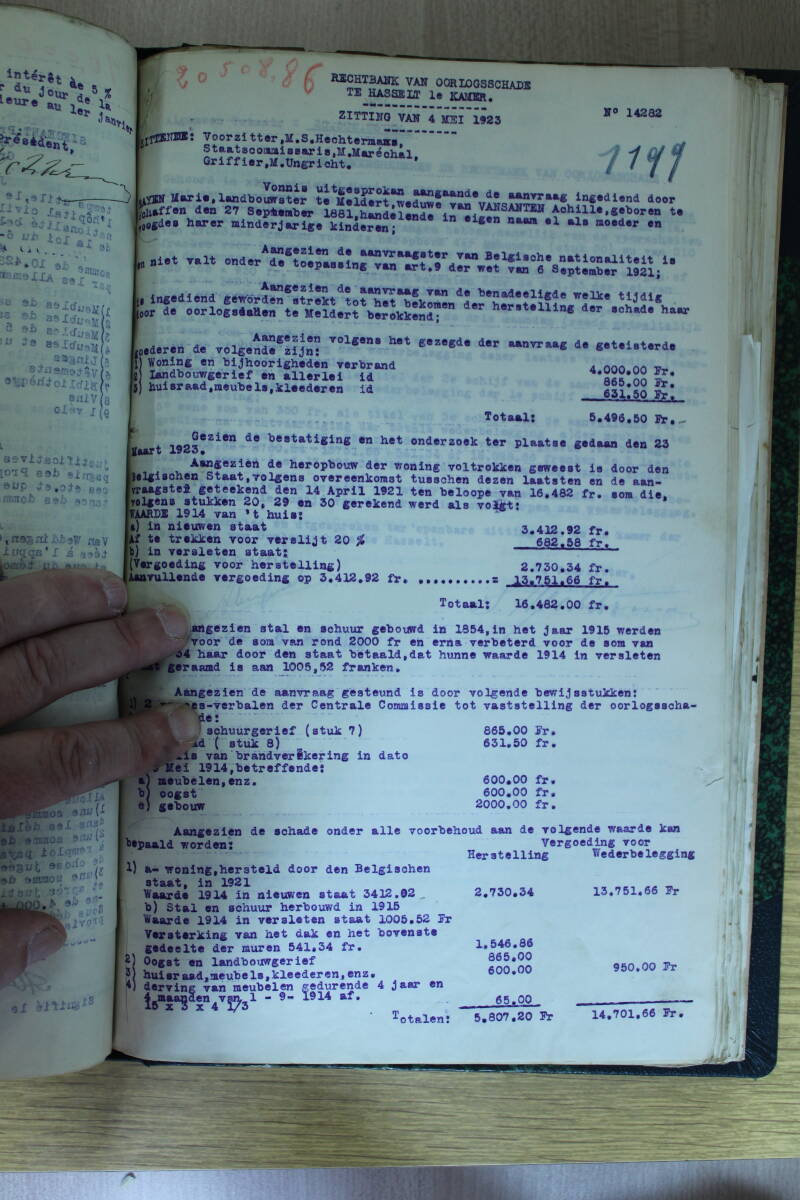 20508.86
RECHTBANK VAN OORLOGSSCHADE
TE HASSELT 1e KAMER.
ZITTING VAN 4 MEI 1923
N° 14282
1199
ZITTENDE: Voorzitter,M.S,Hechtermans,
Staatscommissaris,M.Maréchal,
Griffier,M.Ungricht.
Vonnis uitgesproken aangaande de aanvraag ingediend door
Marie,landbouwster te Meldert,weduwe van VANSANTEN Achille,geboren te
Schaffen den 27 September 1881,handelende in eigen naam el als moeder en
voogdes harer minderjarige kinderen;
Aangezien de aanvraagster van Belgische nationaliteit is
en niet valt onder de toepassing van art.9 der wet van 6 September 1921;
Aangezien de aanvraag van de benadeeligde welke tijdig
is ingediend geworden strekt tot het bekomen der herstelling der schade haar
door de oorlogsdaden te Meldert berokkend;
Aangezien volgens het gezegde der aanvraag de geteisterde
goederen de volgende zijn:
1) Woning en bijhoorigheden verbrand 4.000.00 Fr.
2) Landbouwgerief en allerlei id 865.00 Fr.
3) huisraad,meubels,kleederen id 631.50 Fr.
Totaal: 5.496.50 Fr.-
Gezien de bestatiging en het onderzoek ter plaatse gedaan den 23
Maart 1923.
Aangezien de heropbouw der woning voltrokken geweest is door den
Belgischen Staat,volgens overeenkomst tusschen dezen laatsten en de aan-
vraagster geteekend den 14 April 1921 ten beloope van 16.482 fr. som die,
volgens stukken 20, 29 en 30 gerekend werd als volgt:
WAARDE 1914 van 't huis:
a) in nieuwen staat 3.412.92 fr.
Af te trekken voor verslijt 20 % 682.58 fr.
b) in versleten staat:
(Vergoeding voor herstelling) 2.730.34 fr.
Aanvullende vergoeding op 3.412.92 fr. ..........= 13.751.66 fr.
Totaal: 16.482.00 fr.
angezien stal en schuur gebouwd in 1854,in het jaar 1915 werden
voor de som van rond 2000 fr en erna verbeterd voor de som van
34 haar door den staat betaald,dat hunne waarde 1914 in versleten
geraamd is aan 1005,52 franken.
Aangezien de aanvraag gesteund is door volgende bewijsstukken:
1) 2 es-verbalen der Centrale Commissie tot vaststelling der oorlogsscha-
de:
schuurgerief (stuk 7) 865.00 Fr.
( stuk 8) 631.50 fr.
is van brandverzkering in dato
Mei 1914,betreffende:
a) meubelen,enz. 600.00 fr.
b) oogst 600.00 fr.
c) gebouw 2000.00 fr.
Aangezien de schade onder alle voorbehoud aan de volgende waarde kan
bepaald worden: Vergoeding voor
Herstelling Wederbelegging
1) a- woning,hersteld door den Belgischen
staat, in 1921
Waarde 1914 in nieuwen staat 3412.92 2.730.34 13.751.66 Fr
b) Stal en schuur herbouwd in 1915
Waarde 1914 in versleten staat 1005.52 Fr
Versterking van het dak en het bovenste
gedeelte der muren 541.34 fr. 1.546.86
2) Oogst en landbouwgerief 865.00
3) huisraad,meubels,kleederen,enz. 600.00 950.00 Fr
4) derving van meubelen gedurende 4 jaar en
4 maanden van 1 - 9- 1914 af.
15 x 3 x 4 1/3 65.00
Totalen: 5.807.20 Fr 14.701.66 Fr.
intérêt de 5 %
r du jour de la
ieure au 1er janvier